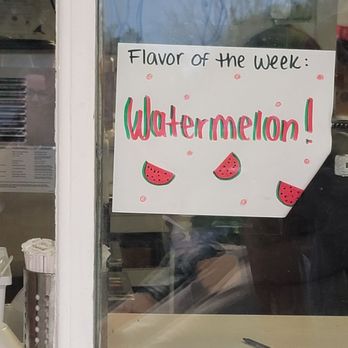 Flavor of the week:
Watermelon!